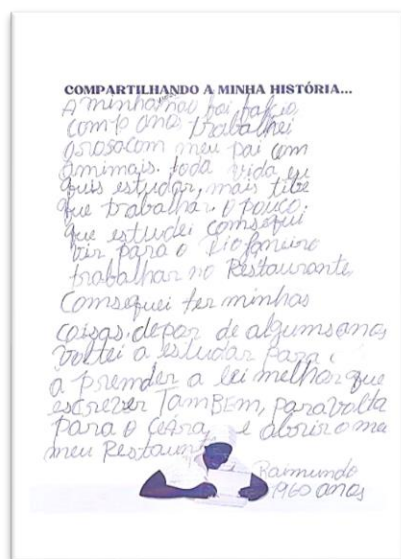 COMPARTILHANDO A MINHA HISTÓRIA...
A minha mãe foi
com anos trabalhei
com meu pai com
amimais. toda vida eu
quis estudar, mais tive
que trabalhar. o pouco
que estudei comsegui
vir para o Rio Janeiro
trabalhar no Restaurante
Comseguei ter minhas
coisas. depor de algums anos
voltei a estudar Para
a premder a lei melhor que
escrever TamBEm, Para volta
Para o CeAra, e abrir o meu
meu Restaurante
Raimundo
1960 anos